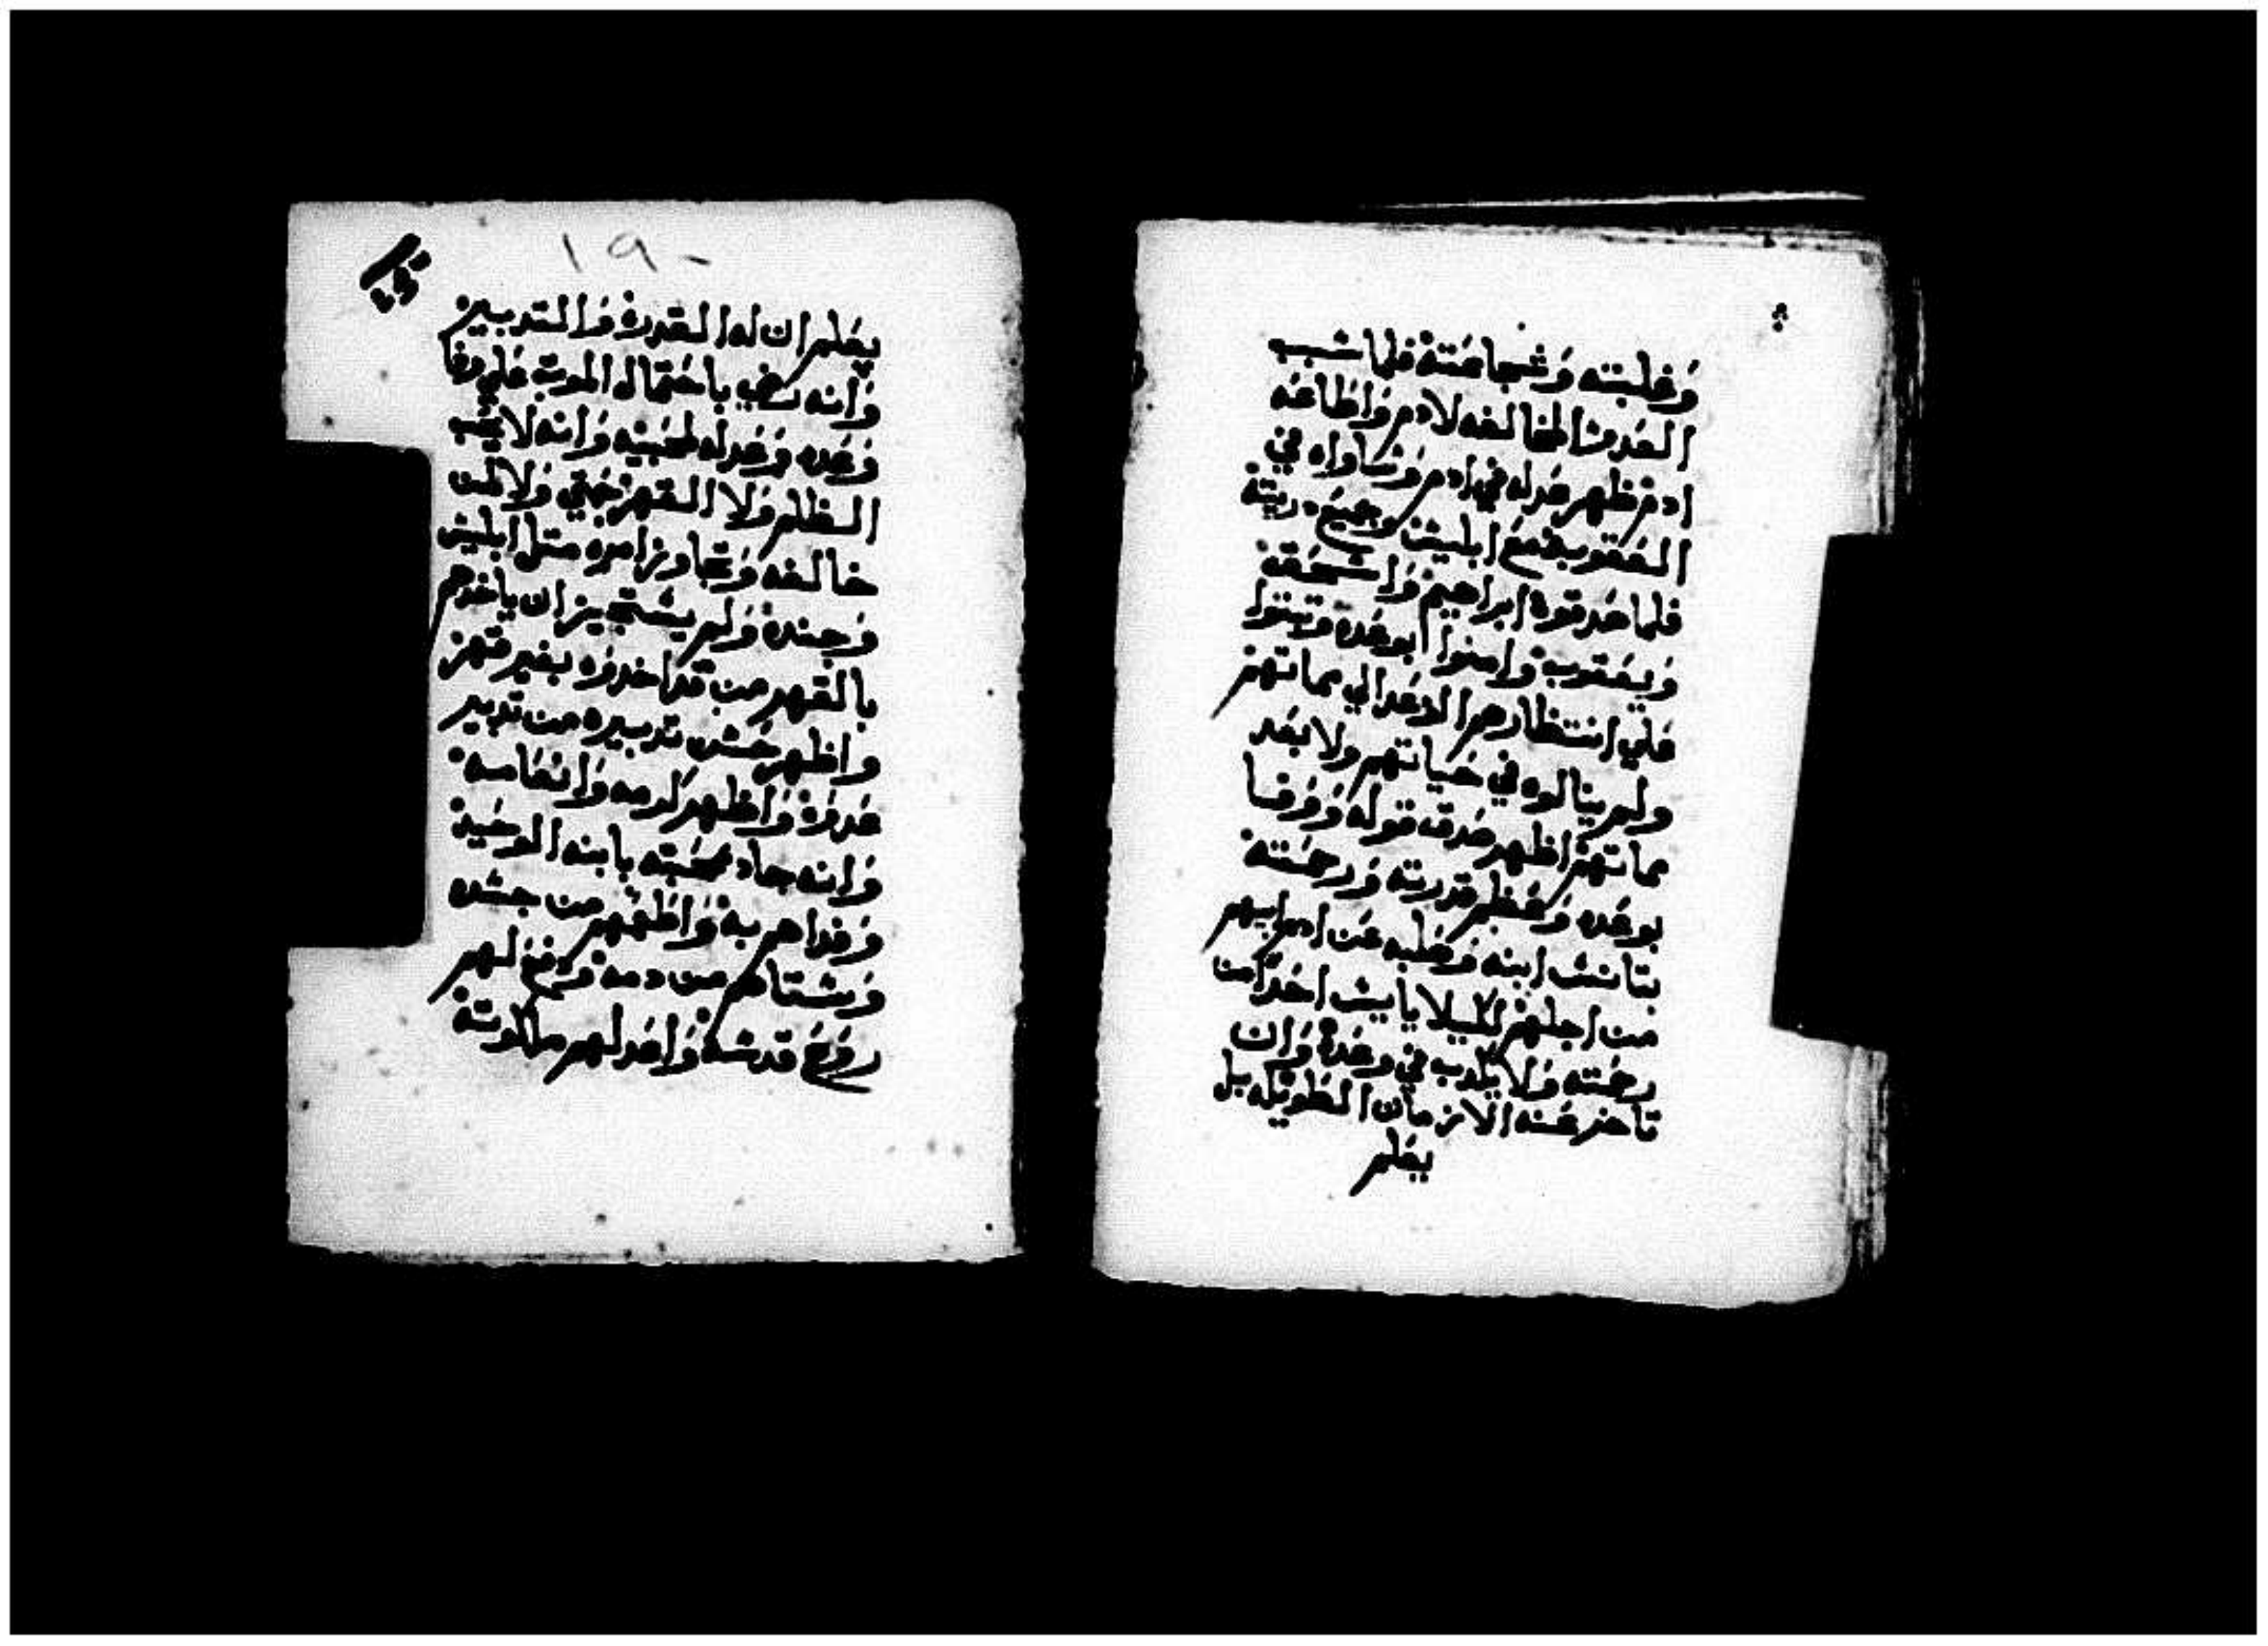 وغلبته وشجاعته فلما شبب
العدو شا لمخالفه لادم واطاعه
ادم ظهر عدله في ادم وساواه في
العقوبه مع ابليس وجميع دريته
فلما صدقوه ابراهيم واسحق
ويعقوب وامنوا بوعده وتبتوا
علي انتظارهم الوعد الي مماتهم
ولم ينالوه في حياتهم ولا بعد
مماتهم اظهر صدق قوله ووفا
بوعده وعظم قدرته ورحمته
بتانس ابنه وصلبه عن ادم ابيهم
من اجلهم لكيلا يايس احدا من
رحمته ولا يكدب في وعده وان
تاخر عنه الازمان الطويله بل
يعلم
١٩٠
يعلم ان له القدره والتدبير
وانه رضي باحتمال الموت علي وفا
وعده وعدله لمحبيه وانه لا يحب
الظلم ولا القهر حتي ولا لمن
خالفه وتجاوز امره متل ابليس
وجنده ولم يستجيز ان ياخدهم
بالقهر من قد اخدوه بغير قهر
واظهر حسن تدبيره من تدبير
عدوه واظهر كرمه وانعامه
وانه جاد بمحبته بابنه الوحيد
وفداهم به واطعمهم من جسده
وسقاهم من دمه ودفع لهم
روح قدسه واعد لهم ملكوته